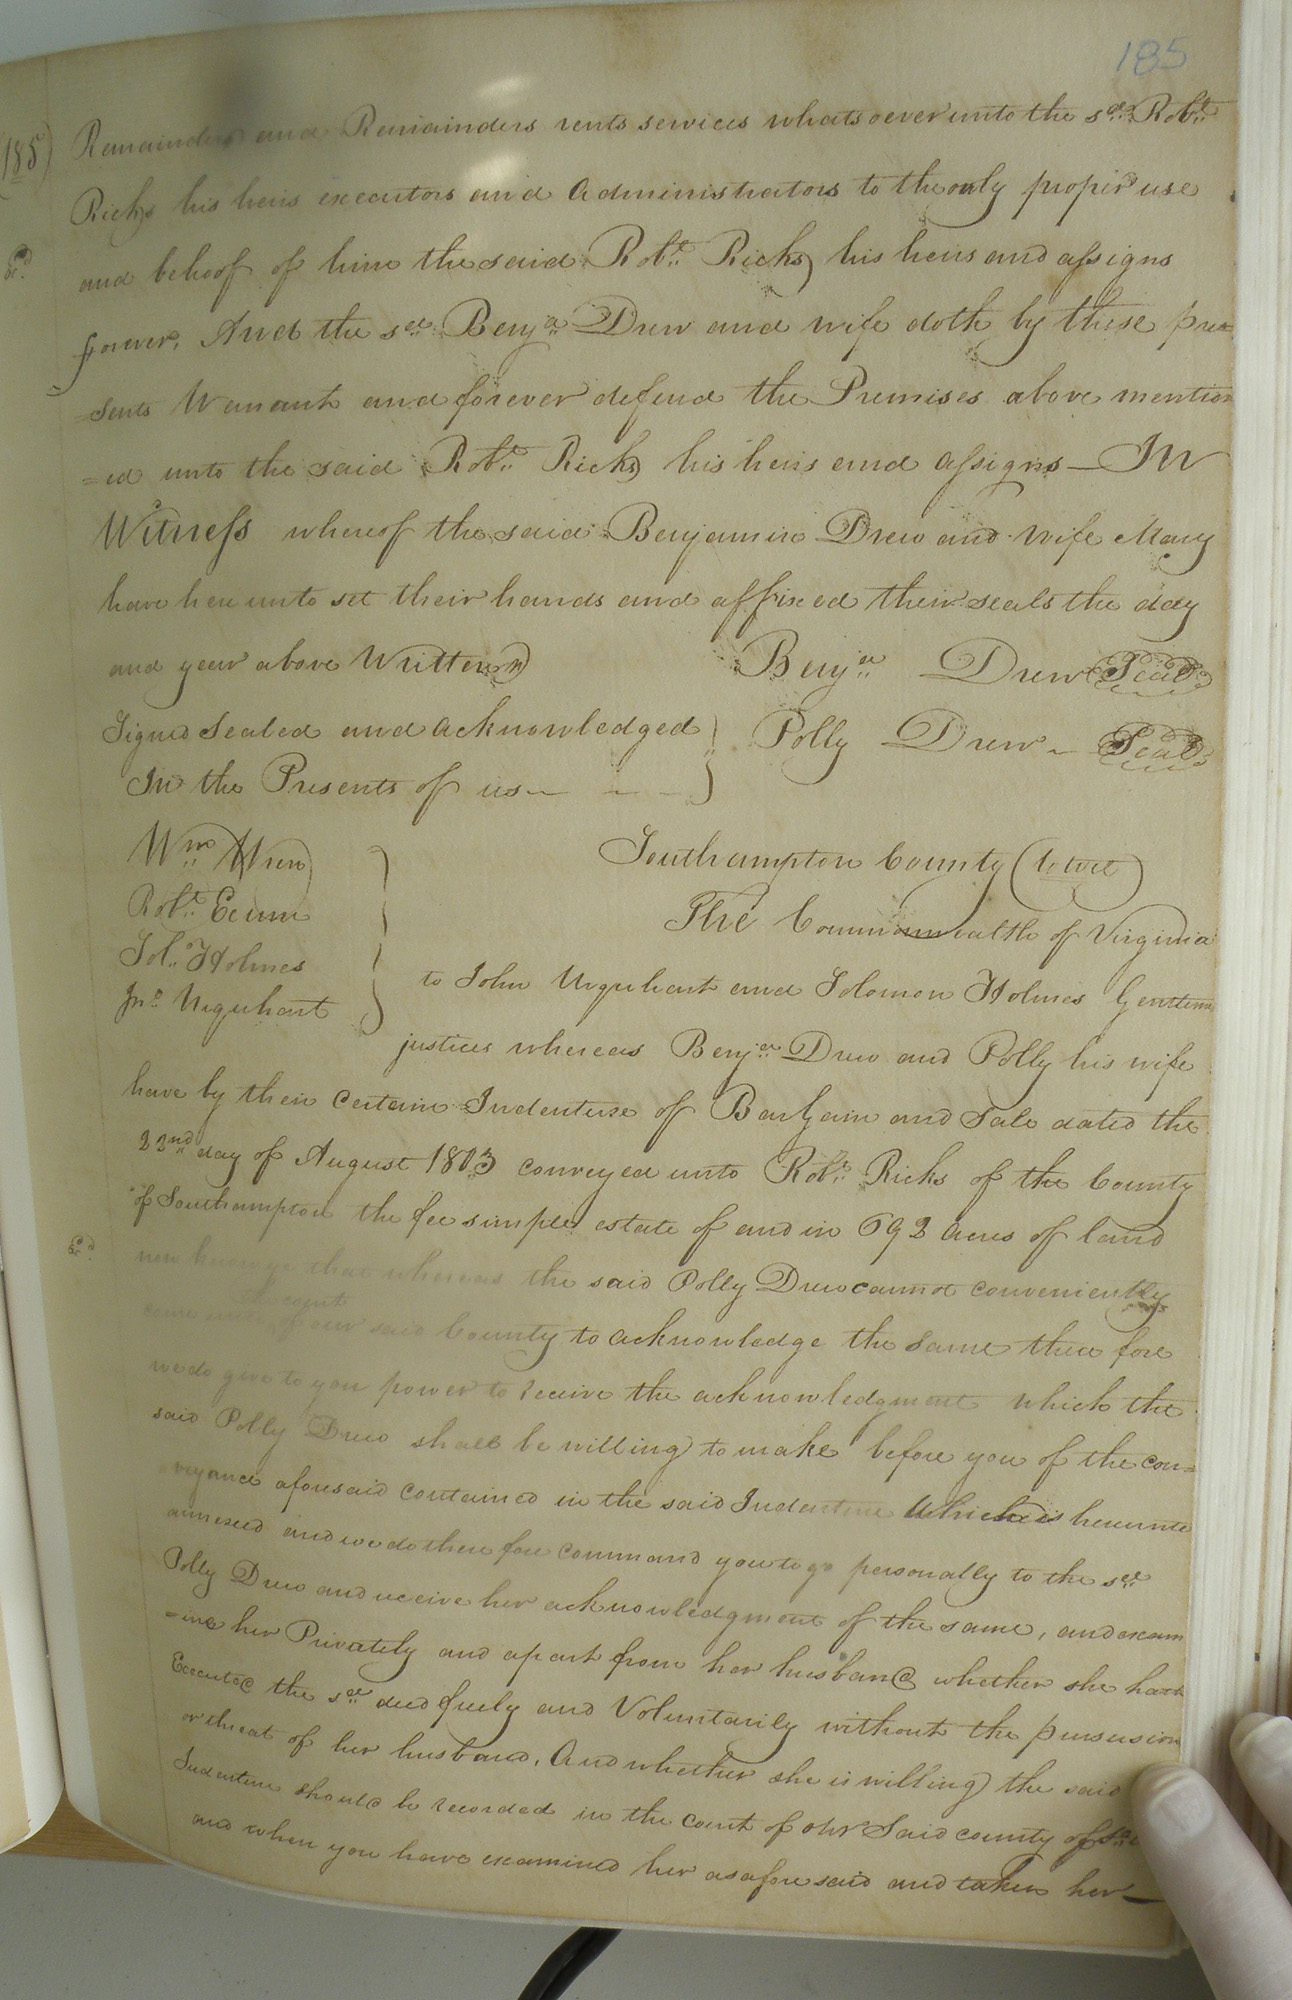 185
(185)
Remainder and Remainders rents services whatsoever unto the sd. Robt.
Ricks his heirs executors and Administrators to the only proper use
and behoof of him the said Robt. Ricks his heirs and assigns
forever. And the sd. Benja. Drew and wife doth by these pre
=sents Warrant and forever defend the Premises above mention
=ed unto the said Robt. Ricks his heirs and assigns — In
Witness whereof the said Benjamin Drew and wife Mary
have here unto set their hands and affixed their seals the day
and year above Written
Benja. Drew Seal
Signed Sealed and acknowledged
Polly Drew - Seal
In the Presents of us
Wm. Wren
Robt.
Sol. Holmes
Jno. Urquhart
Southampton County (to wit)
The Commonwealth of Virginia
to John Urquhart and Solomon Holmes Gentlemen
justices whereas Benja. Drew and Polly his wife
have by their certain Indenture of Bargain and Sale dated the
22nd day of August 1803 conveyed unto Robt. Ricks of the County
of Southampton the fee simple estate of and in 692 acres of land
now know ye that whereas the said Polly Drew cannot conveniently
court
come into of our said County to acknowledge the same there fore
we do give to you power to receive the acknowledgment which the
said Polly Drew shall be willing to make before you of the con=
veyance aforesaid contained in the said Indenture which is hereunto
annexed and we do there fore command you to go personally to the sd.
Polly Drew and receive her acknowledgment of the same, and exam
=ine her Privately and apart from her husband whether she hath
Executed the sd. deed freely and Voluntarily without the persusion
or threat of her husband. And whether she is willing the said
Indenture should be recorded in the court of our Said county of
and when you have examined her as afore said and taken her —